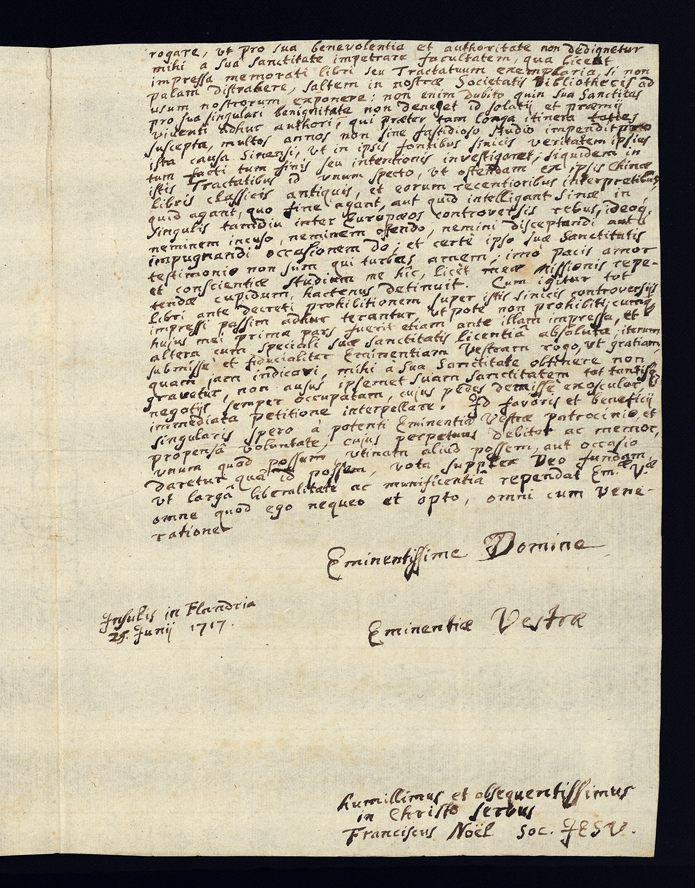 rogare, ut pro sua benevolentia et authoritate non dedignetur
mihi a sua sanctitate impetrare facultatem, qua liceat
impressa memorati libri seu Tractatuum exemplaria, si non
palam distrahere, saltem in nostræ Societatis Bibliothecis ad
usum nostrorum exponere: non enim dubito quin sua Sanctitas
pro sua singulari benignitate non deneget id solatij et præmij
viventi adhuc authori, qui præter tam longa itinera toties
suscepta, multos annos non sine fastidioso studio impendit
ista causa Sinensi, ut in ipsis fontibus sinicis veritatem ipsius
tum facti tum finis seu intentionis investigaret; siquidem in
istis Tractatibus id unum specto, ut ostendam ex ipsis Chinæ
libris classicis antiquis, et eorum recentioribus interpretibus,
quid agant, quo fine agant, aut quid intelligant sinæ in
singulis tamdiu inter Europæos controversis rebus, ideoq.
neminem incuso, neminem ofendo, nemini disceptandi aut
impugnandi occasionem do; et certe ipso suæ Sanctitatis
testimonio non sum qui turbas amem; imo pacis amor
et conscientiæ studium me hic, licet meæ Missionis repe-
tendæ cupidum, hactenus detinuit. Cum igitur tot
libri ante decreti prohibitionem super istis sinicis controversijs
impressi passim adhuc terantur, utpote non prohibiti; cumq.
hujus mei prima pars fuerit etiam ante illam impressa, et
altera cum speciali suæ sanctitatis licentiâ absoluta, iterum
submisse et fiducialiter Eminentiam Vestram rogo, ut gratiam
quam jam indicavi, mihi a sua Sanctitate obtinere non
gravetur, non ausus ipsemet suam sanctitatem tot tantisq.
negotijs semper occupatam, cujus pedes demisse exosculor
immediata petitione interpellare. Id favoris et beneficij
singularis spero à potenti Eminentiæ Vestræ patrocinio, et
propensâ voluntate, cujus perpetuus debitor ac memor,
unum quod possum, utinam aliud possem, aut occasio
daretur quâ id possem, vota supplex Deo fundam,
ut largâ liberalitate ac munificentia rependat Em.æ V.æ
omne quod ego nequeo et opto, omni cum vene-
ratione
Eminentissime Domine
Insulis in Flandria
25. Junij 1717.
Eminentiæ Vestræ
humillimus et obsequentissimus
in Christo servus
Franciscus Noël Soc. JESU.